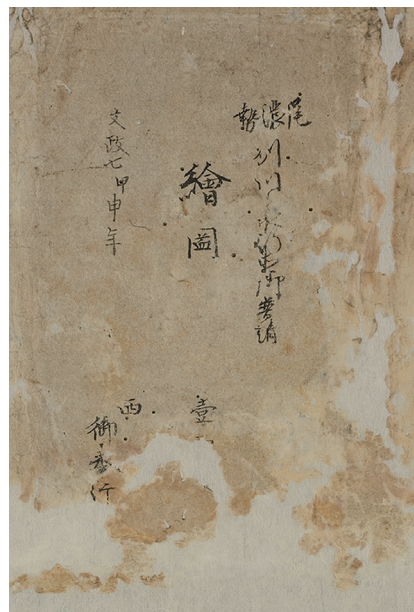 尾濃勢
州川々
御普請
繪圖
文政七甲申年
壹
西
御奉行